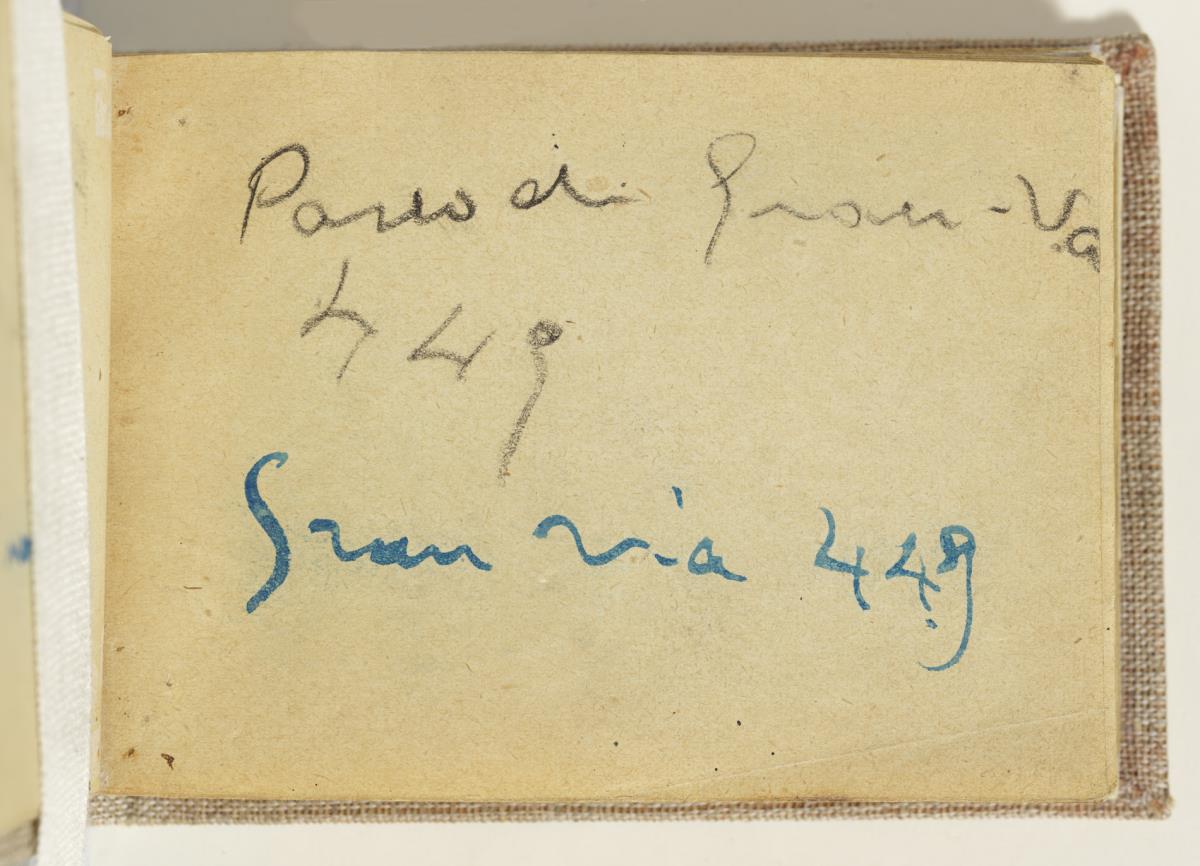 Paseo de Gran-Va
449
Gran via 449